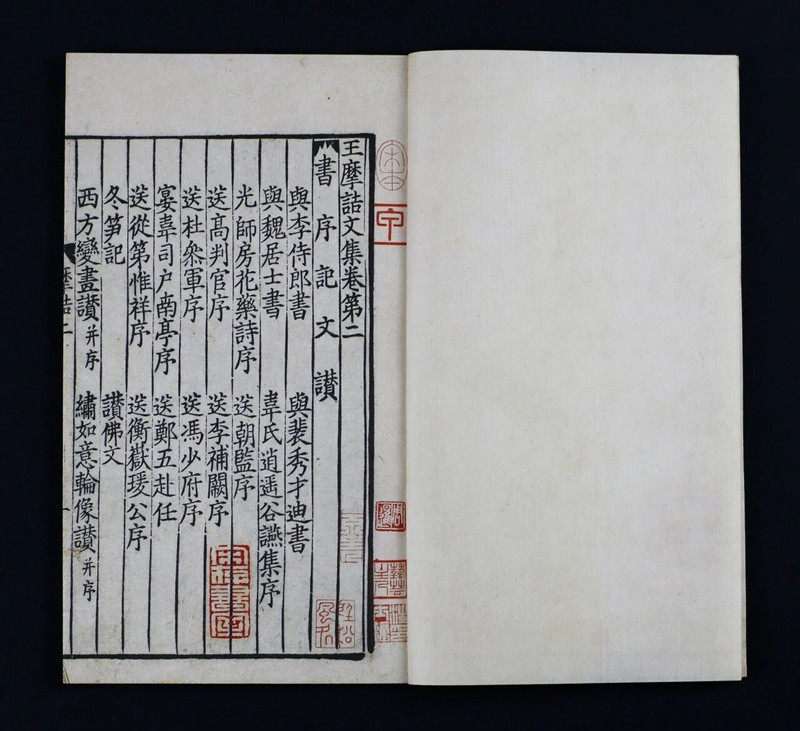 王摩詰文集卷第二
書序記文讃
與李侍郎書　與裴秀才迪書
與魏居士書　韋氏逍遥谷讌集序
光師房花藥詩序　送朝監序
送髙判官序　送李補闕序
送杜叅軍序　送馮少府序
宴韋司户南亭序　送鄭五赴任
送從第惟祥序　送衡嶽瑗公序
冬笋記　讃佛文
西方變畫讃并序　繡如意輪像讃并序
摩詰二